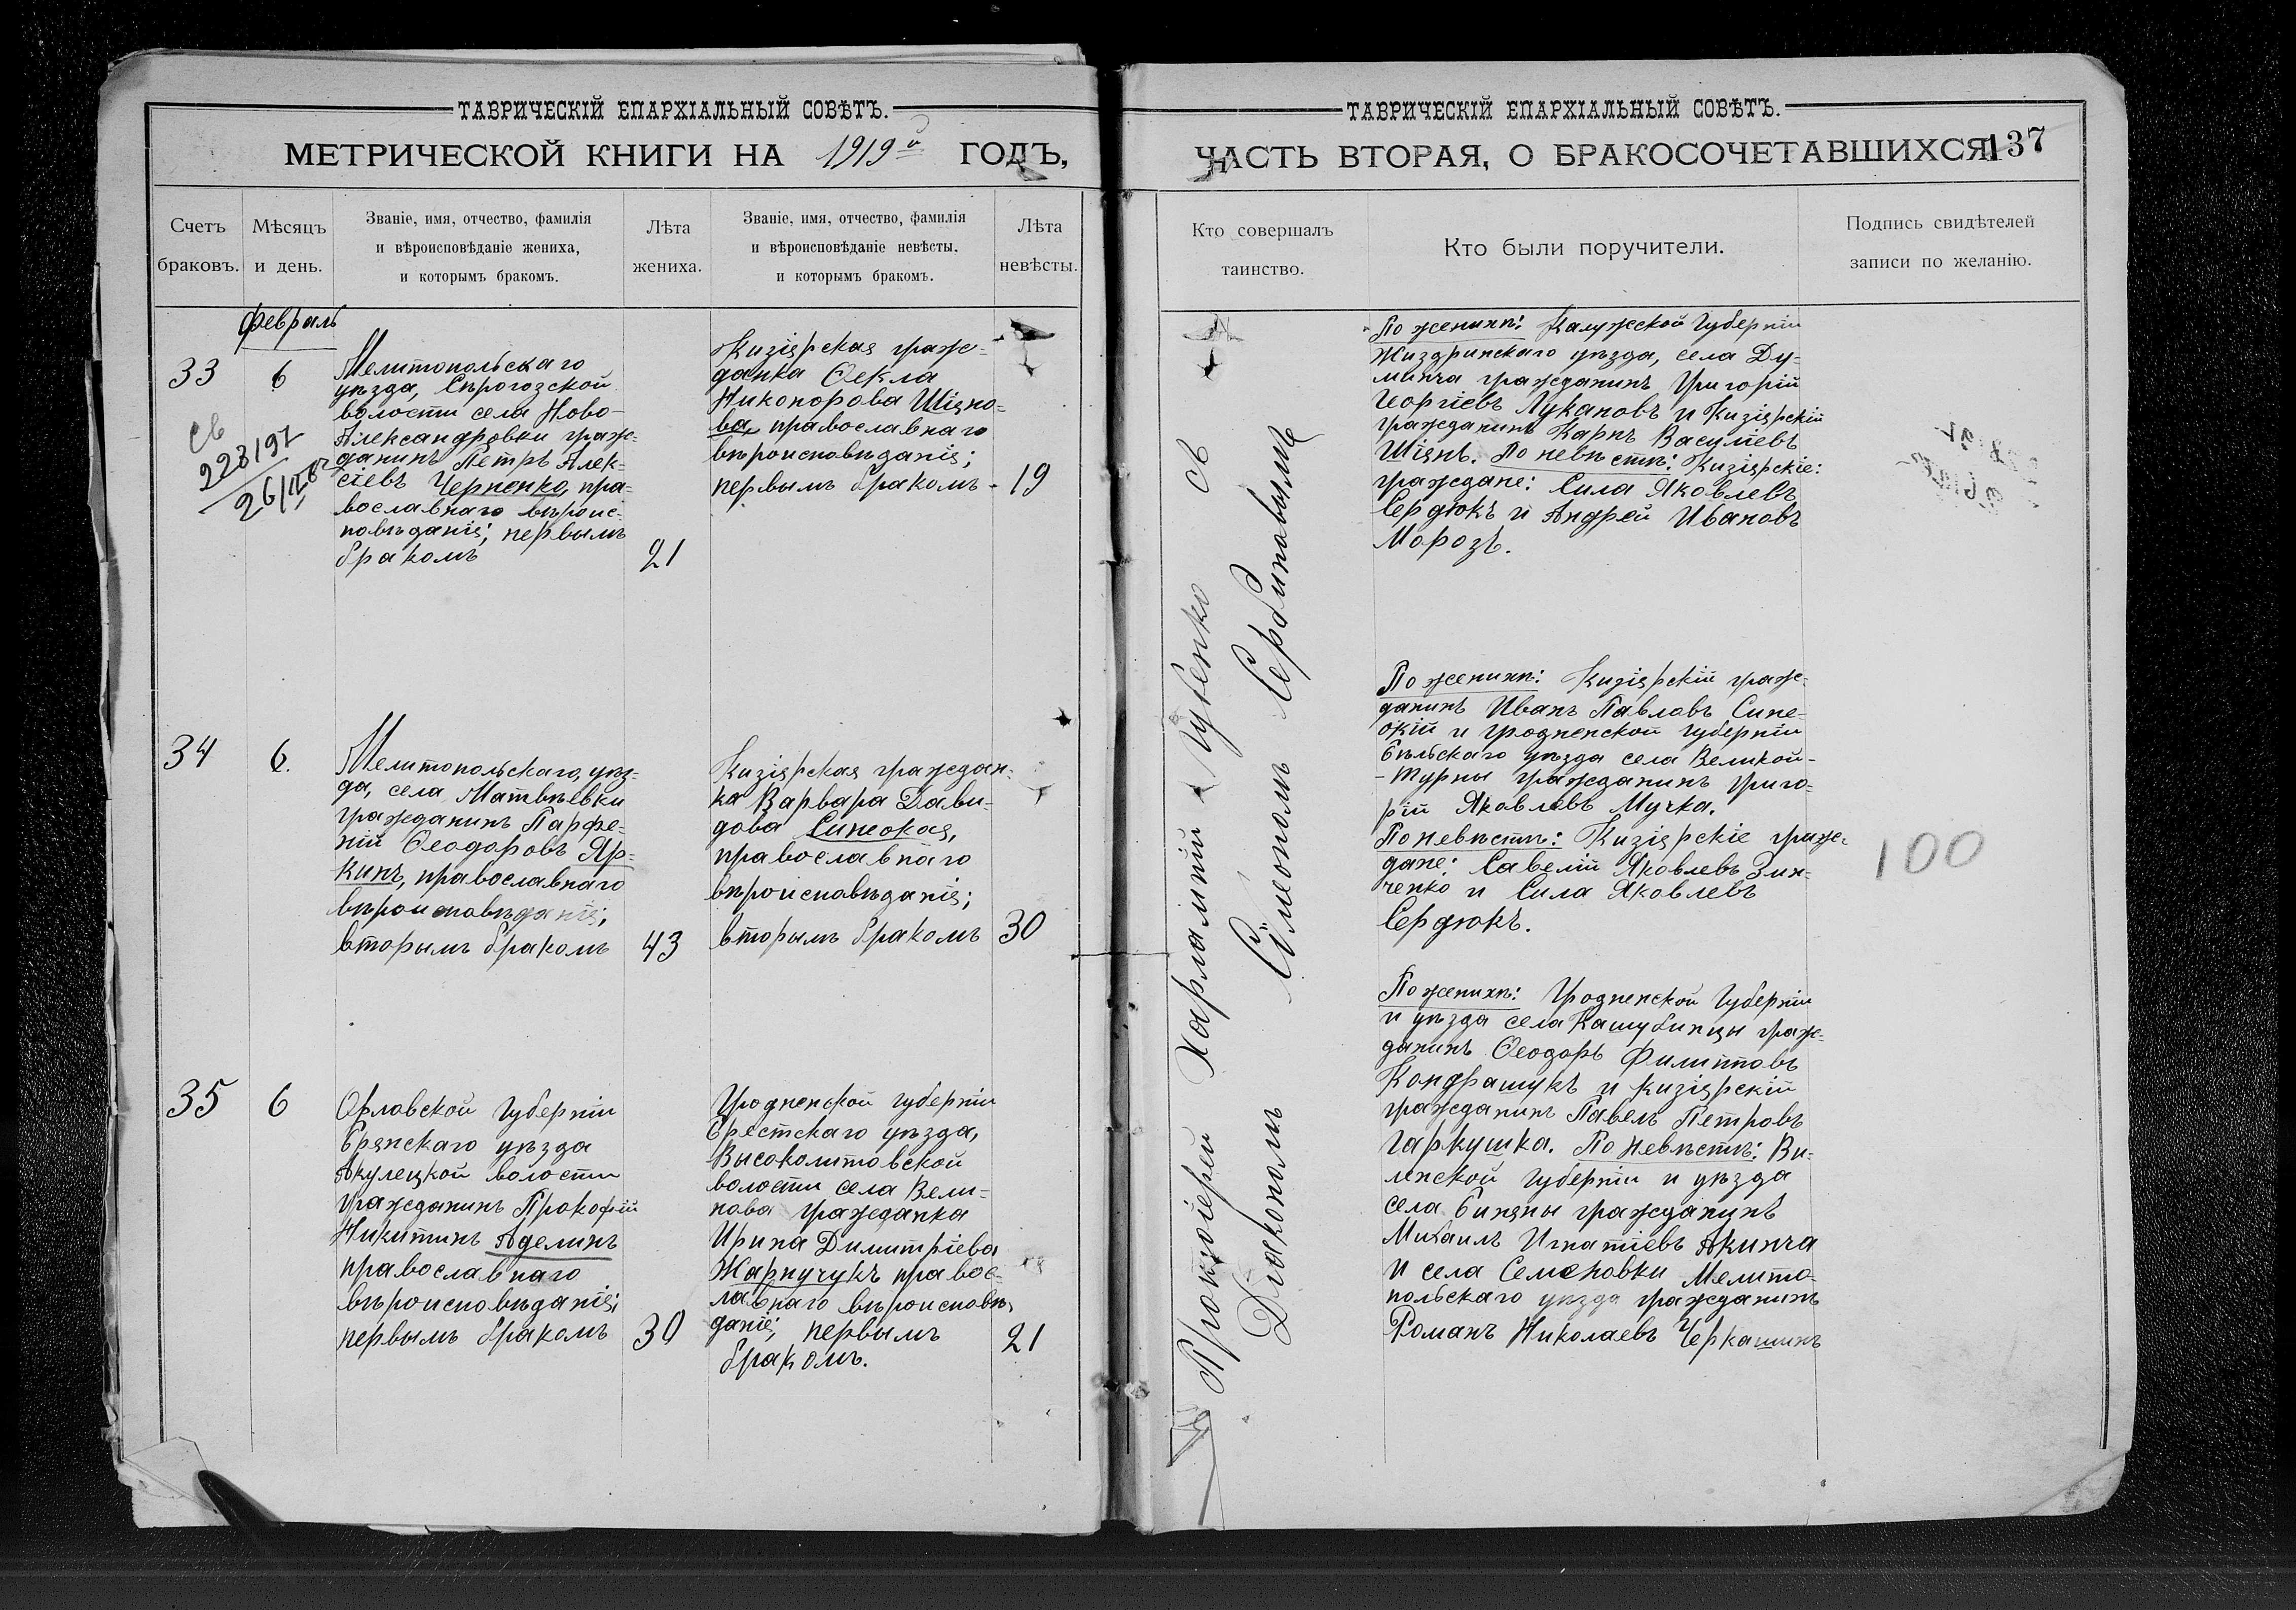 ТАВРИЧЕСКІЙ ЕПАРХІАЛЬНЫЙ СОВѢТЪ.
МЕТРИЧЕСКОЙ КНИГИ НА 1919й ГОДЪ,
Счетъ браковъ.
Мѣсяцъ и день.
Званіе, имя, отчество, фамилія
и вѣроисповѣданіе жениха,
и которымъ бракомъ.
Лѣта жениха.
Званіе, имя, отчество, фамилія
и вѣроисповѣданіе невѣсты.
и которымъ бракомъ.
Лѣта невѣсты.
Февраль
33
6
св
223197
Мелитопольскаго
уѣзда, Сѣрогозской
волости села Ново-
Александровки граж-
данинъ Петръ Алек-
сіевъ Черненко, пра-
вославнаго вѣроис-
повѣданія; первымъ
бракомъ
21
Кизіярская граж-
данка Ѳекла
Никонорова Шіяно-
ва, православнаго
вѣроисповѣданія;
первымъ бракомъ -
19
34
6.
Мелитопольскаго, уѣз-
да, села Матвѣевки
гражданинъ Парфе-
ній Ѳеодоровъ Яр-
кинъ, православнаго
вѣроисповѣданія;
вторымъ бракомъ
43
Кизіярская граждан-
ка Варвара Дави-
дова Синеокая,
православнаго
вѣроисповѣданія;
вторымъ бракомъ
30
35
6
Орловской Губерніи
Брянскаго уѣзда
Акулецкой волости
гражданинъ Прокофій
Никитинъ Аделинъ
православнаго
вѣроисповѣданія;
первымъ бракомъ
30
Гродненской губерніи
Брестскаго уѣзда,
Высоколитовской
волости села Вели-
нова гражданка
Ирина Димитріева
Жарпучукъ правос-
лавнаго вѣроисповѣ-
данія; первымъ
бракомъ.
21
ТАВРИЧЕСКІЙ ЕПАРХІАЛЬНЫЙ СОВѢТЪ.
ЧАСТЬ ВТОРАЯ, О БРАКОСОЧЕТАВШИХСЯ
137
Кто совершалъ
таинство.
Кто были поручители.
Подпись свидѣтелей
записи по желанію.
Протоіерей Харлампій Губенко съ
Діакономъ Сѵмеономъ Сербиновымъ
По женихѣ: Калужской Губерніи
Жиздринскаго уѣзда, села Ду-
минча гражданинъ Григорій
Георгіевъ Лукановъ и Кизіярскій
гражданинъ Карпъ Васуліевъ
Шіянъ. По невѣстѣ: Кизіярскіе:
граждане: Сила Яковлевъ
Сердюкъ и Андрей Ивановъ
Морозъ.
По женихѣ: Кизіярскій граж-
данинъ Иванъ Павловъ Сине-
окій и Гродненской губерніи
Бѣльскаго уѣзда села Великой-
-Турны гражданинъ Григо-
рій Яковлевъ Мучка.
По невѣстѣ: Кизіярскіе граж-
дане: Савелій Яковлевъ Зин-
ченко и Сила Яковлевъ
Сердюкъ.
100
По женихѣ: Гродненской Губерніи
и уѣзда села Кашубинцы граж-
данинъ Ѳеодоръ Филипповъ
Кондрашукъ и Кизіярскій
гражданинъ Павелъ Петровъ
Гаркушка. По невѣстѣ: Ви-
ленской Губерніи и уѣзда
села Биняны гражданинъ
Михаилъ Игнатіевъ Акинча
и села Семеновки Мелито-
польскаго уѣзда гражданинъ
Романъ Николаевъ Черкашинъ